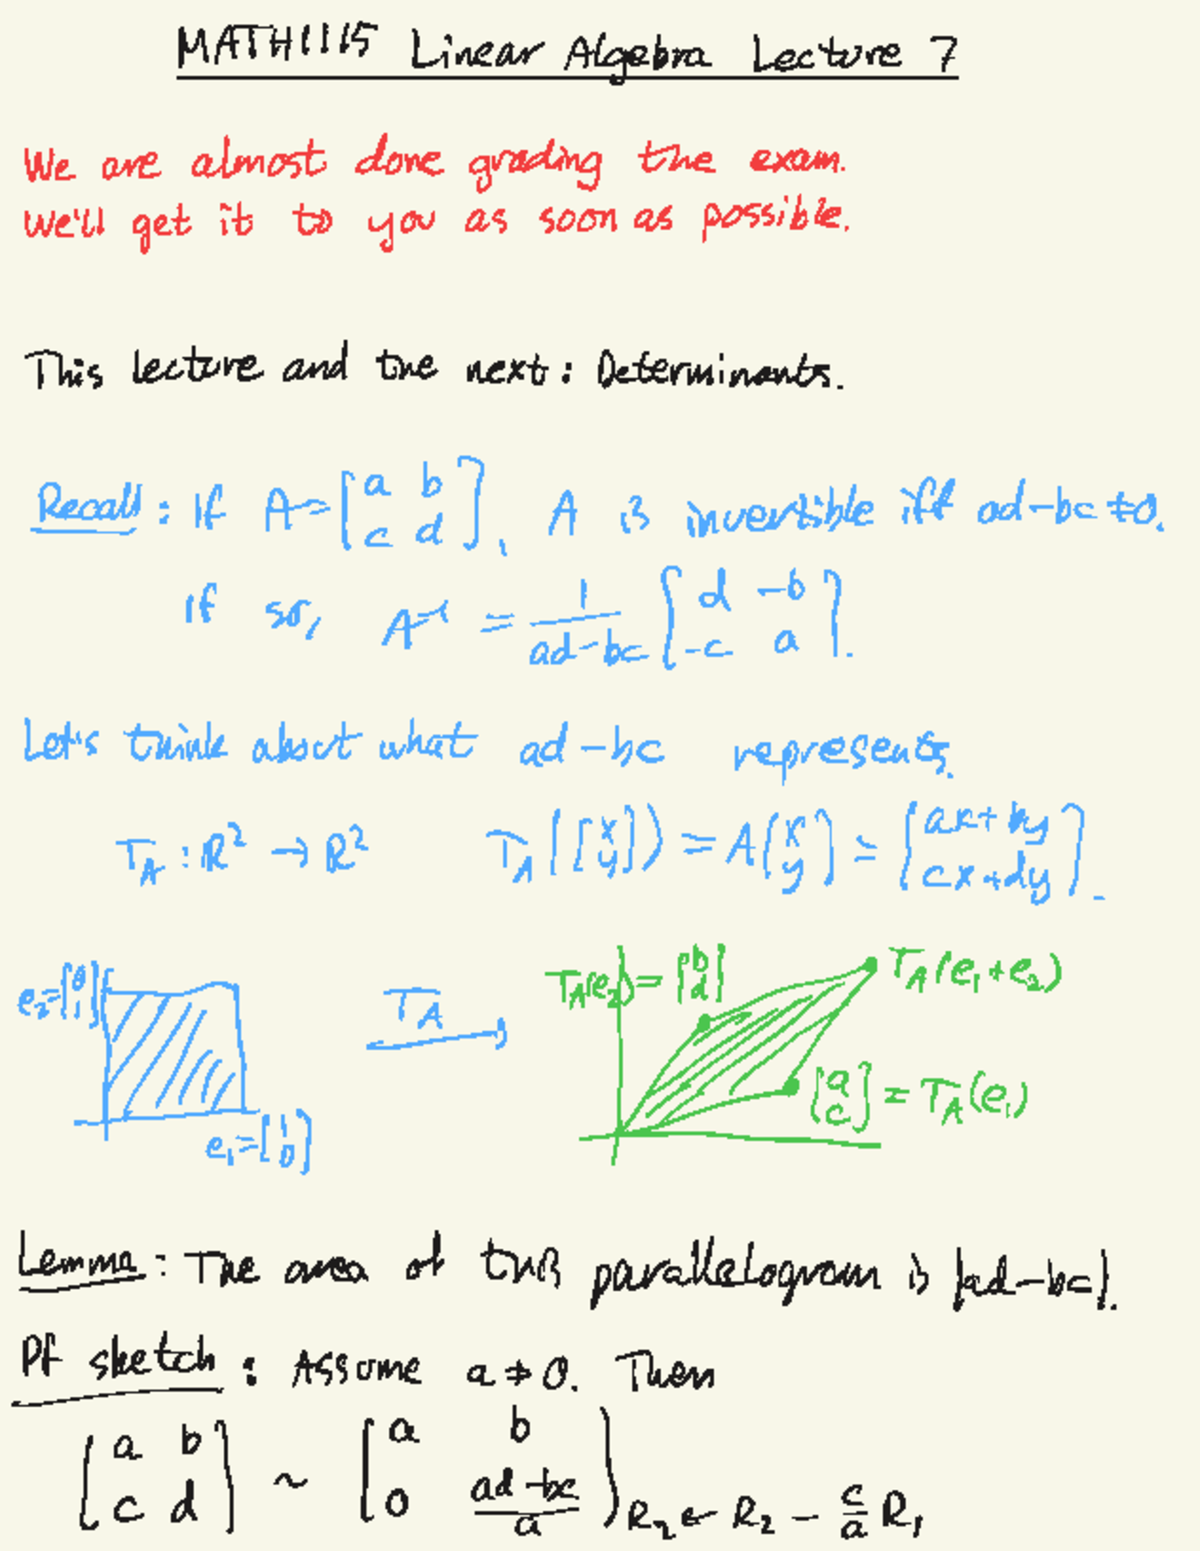 MATH1115 Linear Algebra Lecture 7
We are almost done grading the exam.
We'll get it to you as soon as possible.
This lecture and the next: Determinants.
Recall: If A = [a b; c d], A is invertible iff ad-bc ≠ 0.
If so, A⁻¹ = 1/(ad-bc) [d -b; -c a].
Let's think about what ad-bc represents.
T_A : R² → R² T_A([x; y]) = A[x; y] = [ax+by; cx+dy].
e₂=[0; 1] T_A → T_A(e₂) = [b; d] T_A(e₁+e₂)
e₁=[1; 0] [a; c] = T_A(e₁)
Lemma: The area of this parallelogram is |ad-bc|.
Pf sketch: Assume a ≠ 0. Then
[a b; c d] ~ [a b; 0 (ad-bc)/a] R₂ ← R₂ - c/a R₁